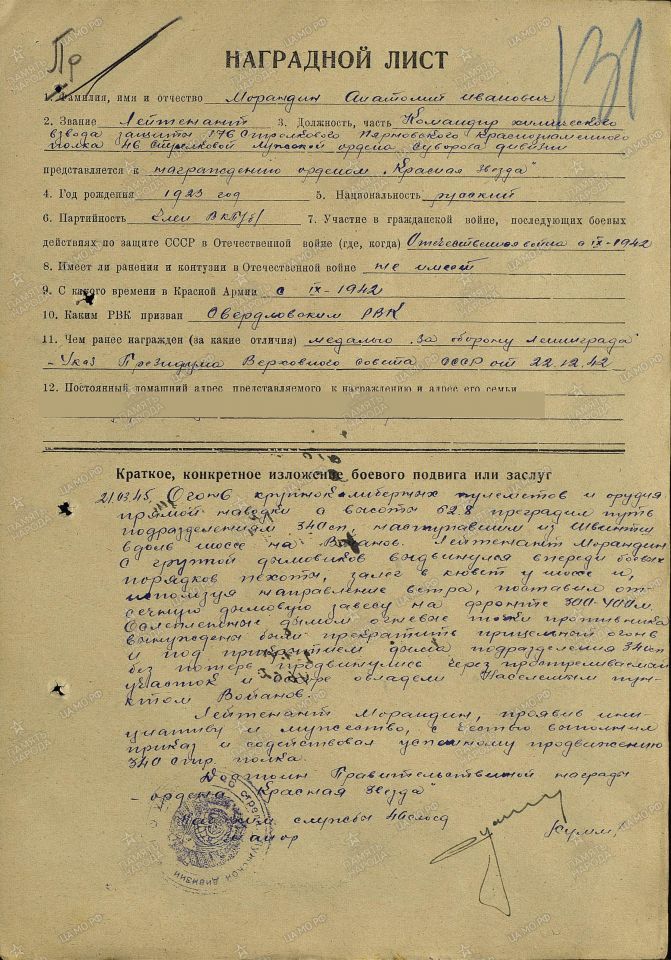 Пр
131
НАГРАДНОЙ ЛИСТ
1. Фамилия, имя и отчество Морандин Анатолий Иванович
2. Звание Лейтенант 3. Должность, часть Командир химического
взвода защиты 176 Стрелкового Нарвского Краснознаменного
полка 46 Стрелковой Лужской ордена Суворова дивизии
представляется к награждению орденом „Красная Звезда"
4. Год рождения 1923 год 5. Национальность русский
6. Партийность Член ВКП/б/ 7. Участие в гражданской войне, последующих боевых
действиях по защите СССР в Отечественной войне (где, когда) Отечественная война с IX-1942
8. Имеет ли ранения и контузии в Отечественной войне не имеет
9. С какого времени в Красной Армии с IX-1942
10. Каким РВК призван Свердловским РВК
11. Чем ранее награжден (за какие отличия) медалью „За оборону Ленинграда"
- Указ Президиума Верховного Совета СССР от 22.12.42
12. Постоянный домашний адрес представляемого к награждению и адрес его семьи
Краткое, конкретное изложение боевого подвига или заслуг
21.03.45. Огонь крупнокалиберных пулеметов и орудия
прямой наводки с высоты 62.8 преградил путь
подразделениям 340 сп, наступавшим из
вдоль шоссе на Войанов. Лейтенант Морандин
с группой дымовиков выдвинулся впереди боевых
порядков пехоты, залег в кювет у шоссе и,
используя направление ветра, поставил от-
сечную дымовую завесу на фронте 300-400 м.
Ослепленные дымом огневые точки противника
вынуждены были прекратить прицельный огонь
и под прикрытием дыма подразделения 340 сп
без потерь продвинулись через простреливаемый
участок и вскоре овладели населенным пун-
ктом Войанов.
Лейтенант Морандин, проявив ини-
циативу и мужество, с честью выполнил
приказ и содействовал успешному продвижению
340 стр. полка.
Достоин Правительственной награды
- ордена „Красная Звезда"
службы 46 слосд
майор